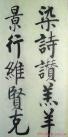 染詩讃羔羊
景行維賢克